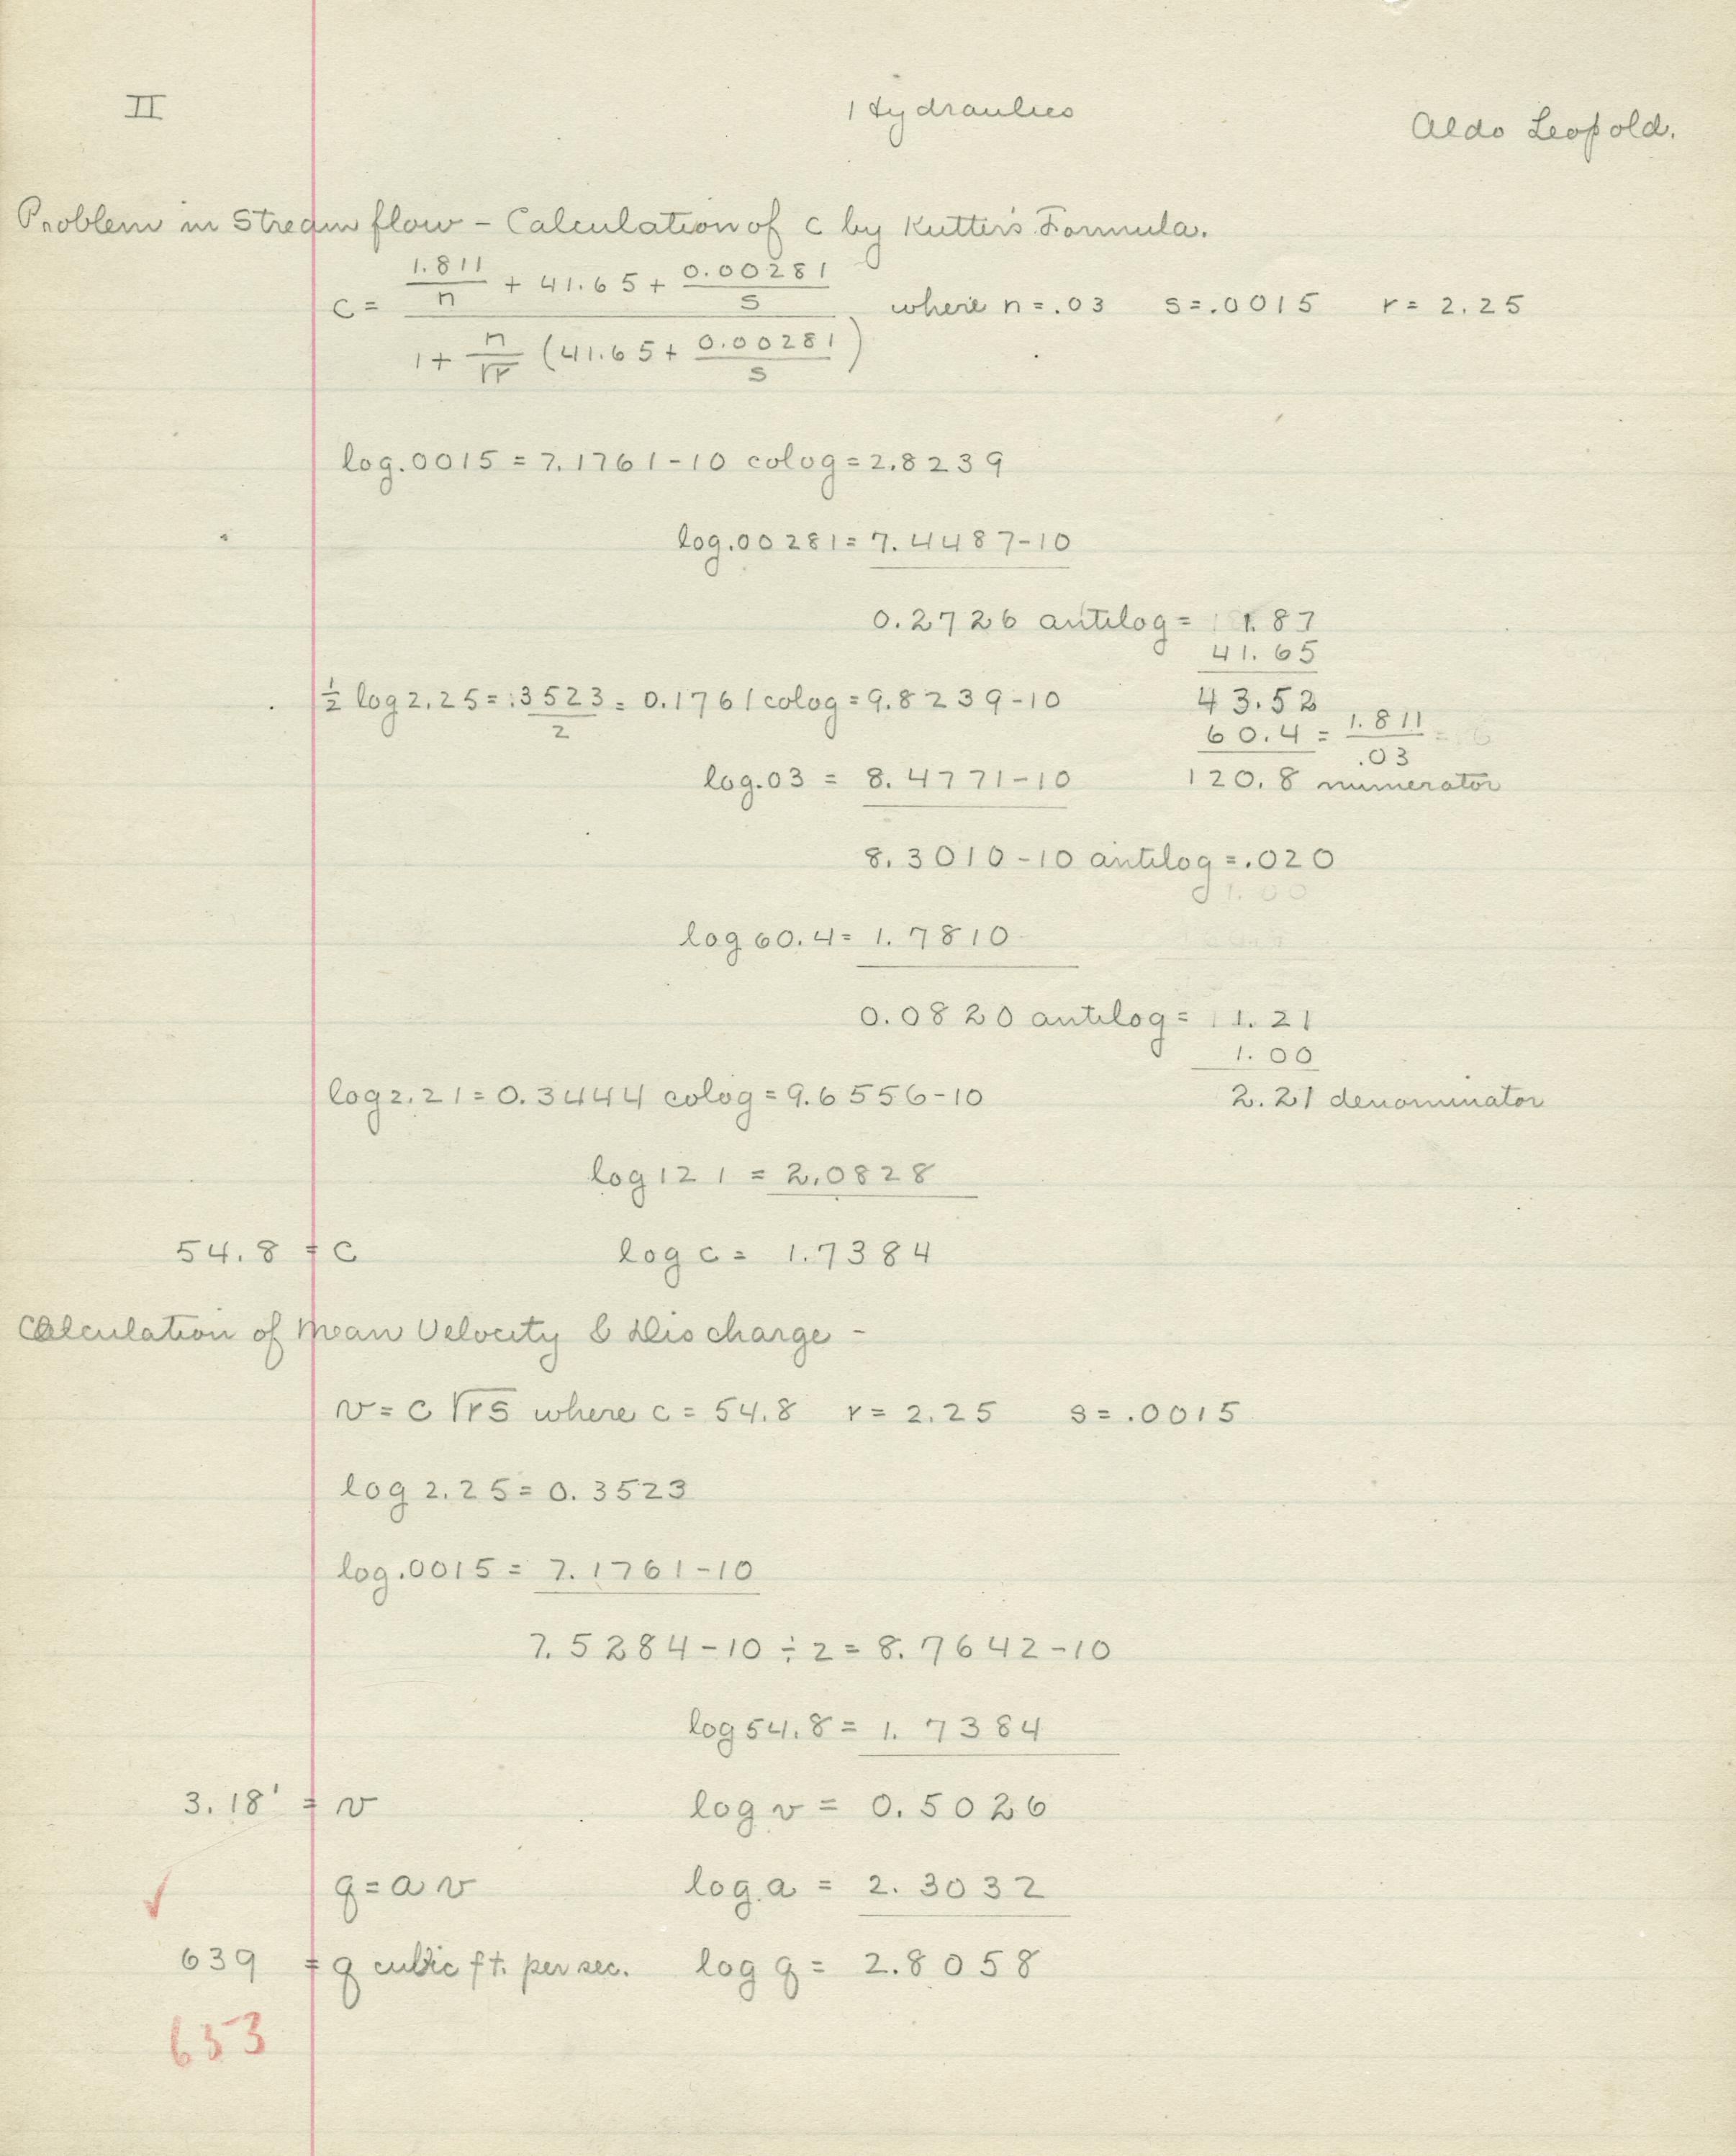 II
Hydraulics
Aldo Leopold.
Problem in Stream flow - Calculation of c by Kutter's Formula.
c = (1.811/n + 41.65 + 0.00281/s) / (1 + n/√r (41.65 + 0.00281/s)) where n = .03 s = .0015 r = 2.25
log .0015 = 7.1761-10 colog = 2.8239
log .00281 = 7.4487-10
0.2726 antilog = 1.87
41.65
½ log 2.25 = .3523/2 = 0.1761 colog = 9.8239-10 43.52
60.4 = 1.811/.03
log .03 = 8.4771-10 120.8 numerator
8.3010-10 antilog = .020
log 60.4 = 1.7810
0.0820 antilog = 1.21
1.00
log 2.21 = 0.3444 colog = 9.6556-10 2.21 denominator
log 121 = 2.0828
54.8 = c log c = 1.7384
Calculation of Mean Velocity & Discharge -
v = c √rs where c = 54.8 r = 2.25 s = .0015
log 2.25 = 0.3523
log .0015 = 7.1761-10
7.5284-10 ÷ 2 = 8.7642-10
log 54.8 = 1.7384
3.18' = v log v = 0.5026
q = a v log a = 2.3032
639 = q cubic ft. per sec. log q = 2.8058
653